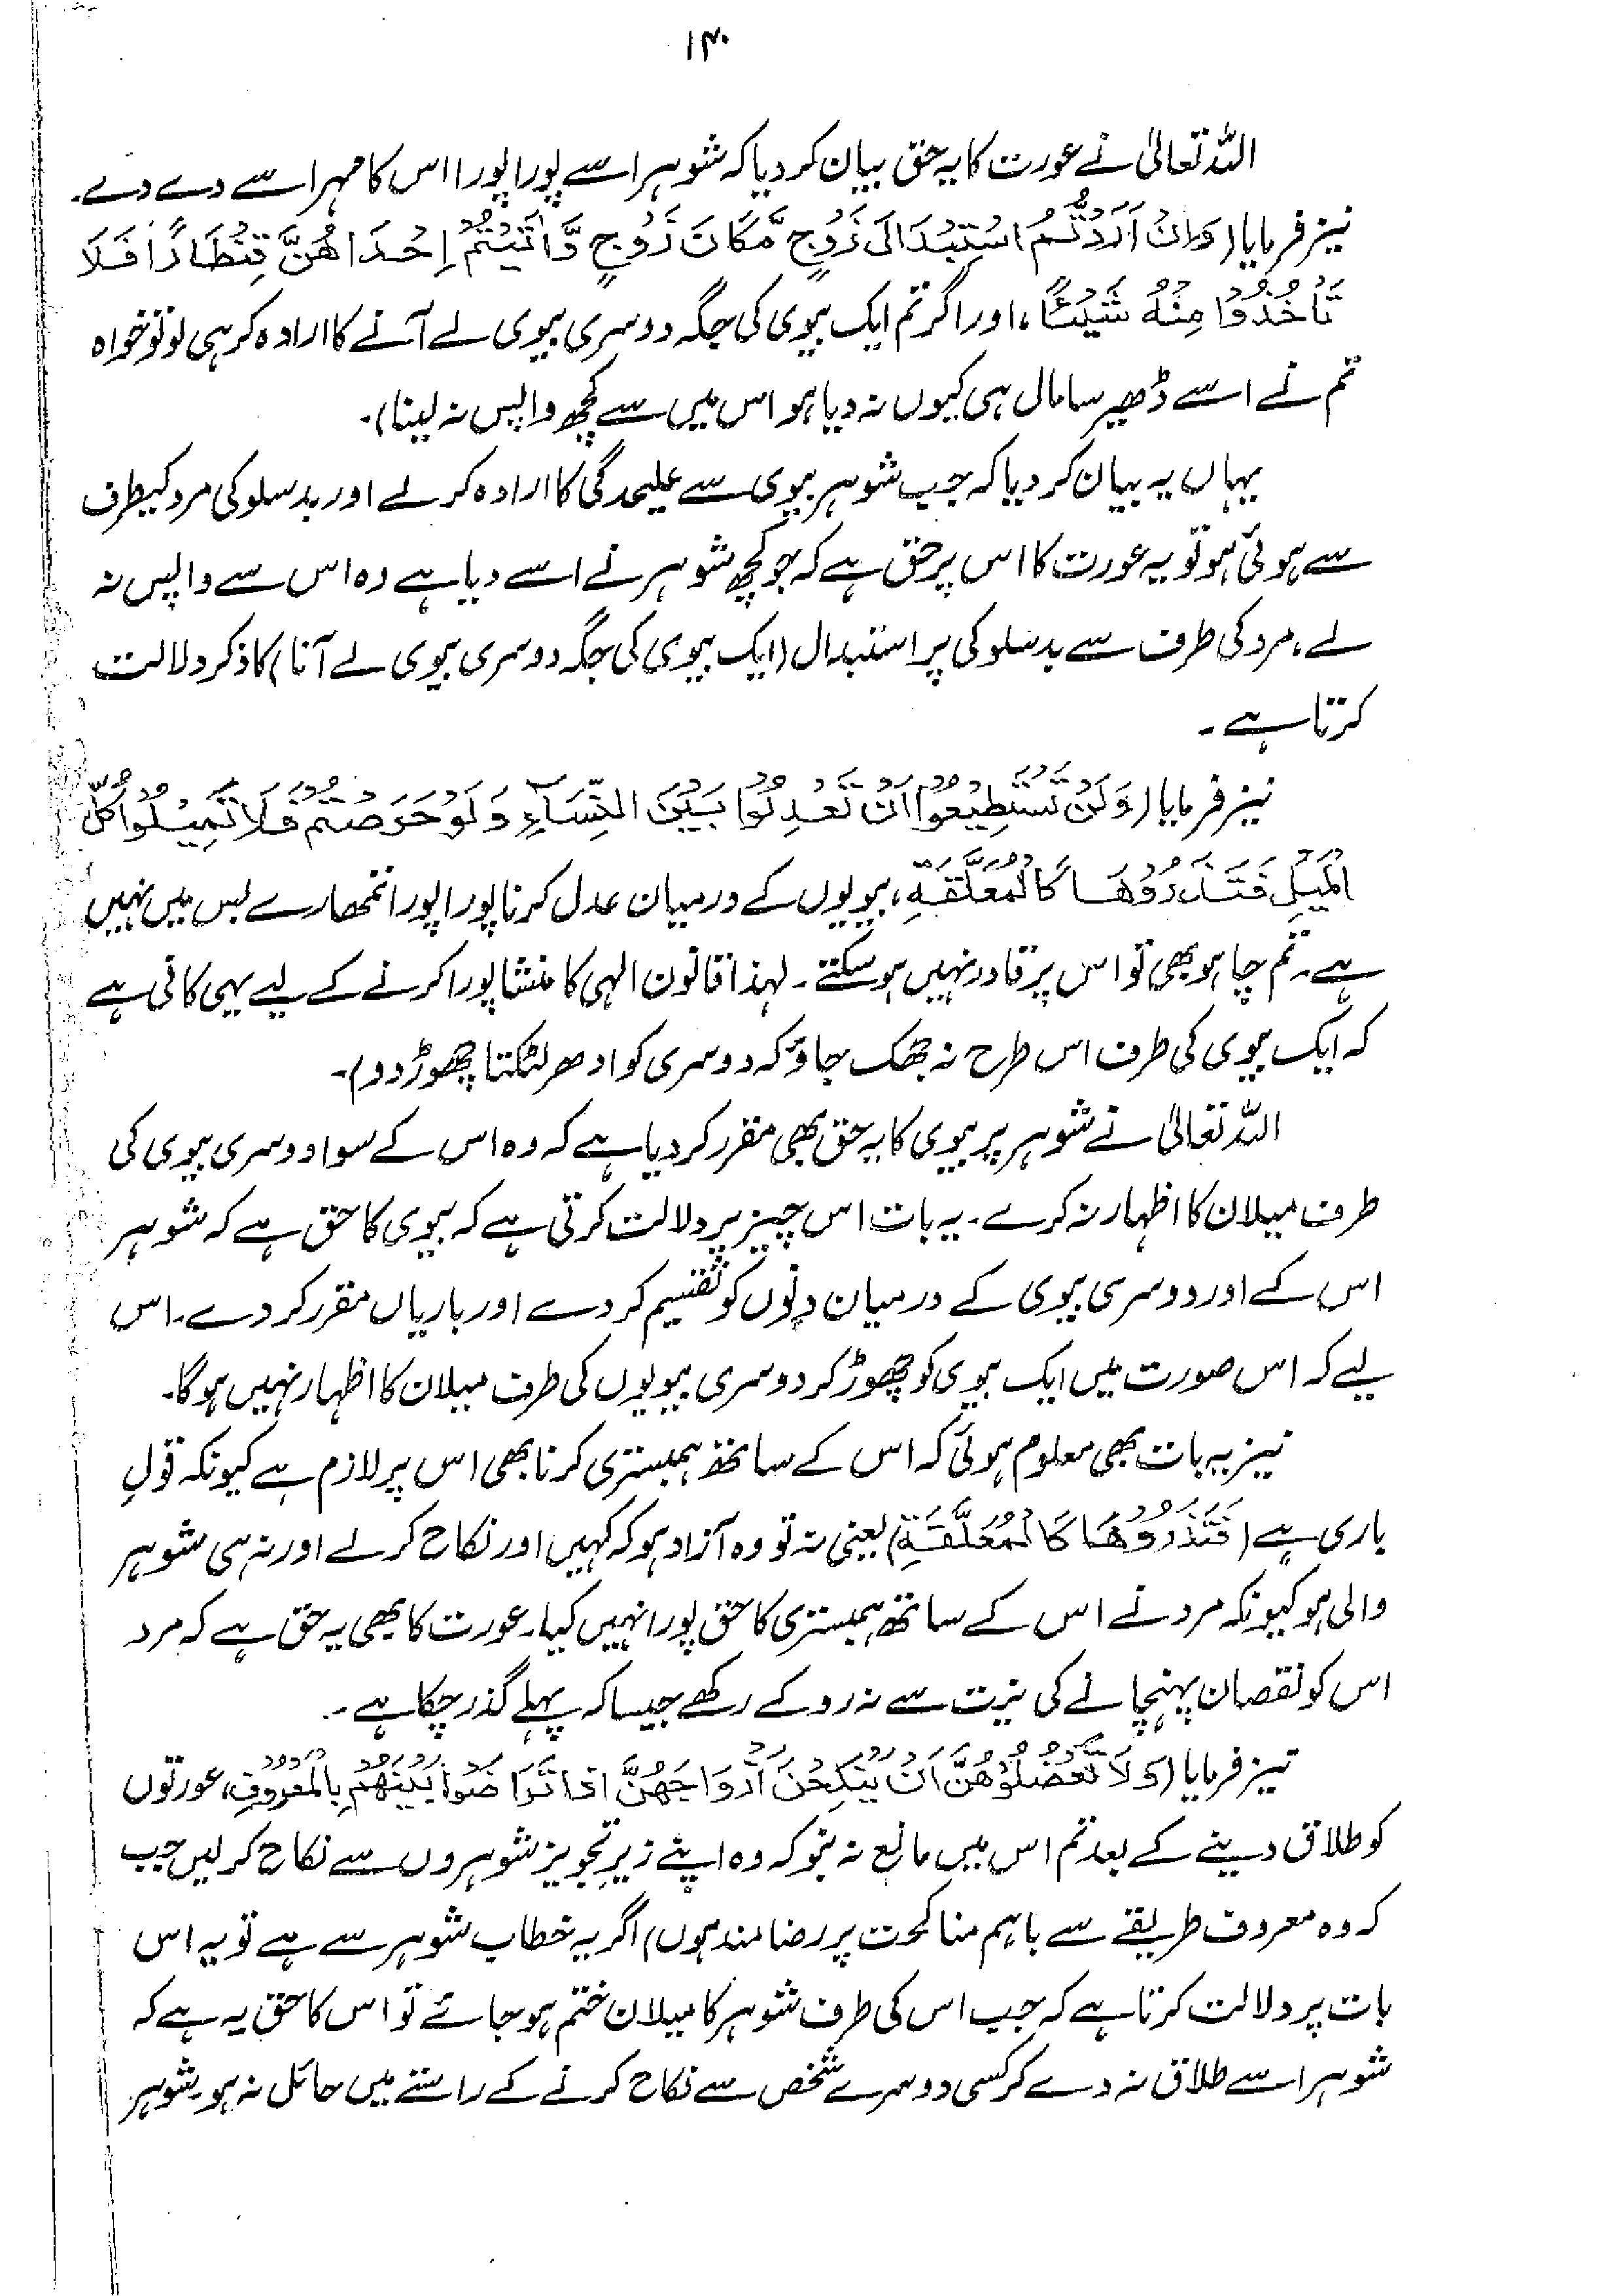 ۱۴۰
اللہ تعالیٰ نے عورت کا یہ حق بیان کر دیا کہ شوہر اسے پورا پورا اس کا مہر اسے دے دے۔
نیز فرمایا (وَاِنْ اَرَدْتُّمُ اسْتِبْدَالَ زَوْجٍ مَّكَانَ زَوْجٍ وَّاٰتَيْتُمْ اِحْدَاهُنَّ قِنْطَارًا فَلَا
تَأْخُذُوْا مِنْهُ شَيْئًا، اور اگر تم ایک بیوی کی جگہ دوسری بیوی لے آنے کا ارادہ کر ہی لو تو خواہ
تم نے اسے ڈھیر سا مال ہی کیوں نہ دیا ہو اس میں سے کچھ واپس نہ لینا)۔
یہاں یہ بیان کر دیا کہ جب شوہر بیوی سے علیحدگی کا ارادہ کر لے اور بدسلوکی مرد کیطرف
سے ہوئی ہو تو یہ عورت کا اس پر حق ہے کہ جو کچھ شوہر نے اسے دیا ہے وہ اس سے واپس نہ
لے، مرد کی طرف سے بدسلوکی پر استبدال (ایک بیوی کی جگہ دوسری بیوی لے آنا) کا ذکر دلالت
کرتا ہے۔
نیز فرمایا (وَلَنْ تَسْتَطِيْعُوْا اَنْ تَعْدِلُوْا بَيْنَ النِّسَآءِ وَلَوْ حَرَصْتُمْ فَلَا تَمِيْلُوْا كُلَّ
الْمَيْلِ فَتَذَرُوْهَا كَالْمُعَلَّقَةِ، بیویوں کے درمیان عدل کرنا پورا پورا تمھارے بس میں نہیں
ہے۔ تم چاہو بھی تو اس پر قادر نہیں ہو سکتے۔ لہذا قانون الہی کا منشا پورا کرنے کے لیے یہی کافی ہے
کہ ایک بیوی کی طرف اس طرح نہ جھک جاؤ کہ دوسری کو ادھر لٹکتا چھوڑ دو)۔
اللہ تعالیٰ نے شوہر پر بیوی کا یہ حق بھی مقرر کر دیا ہے کہ وہ اس کے سوا دوسری بیوی کی
طرف میلان کا اظہار نہ کرے۔ یہ بات اس چیز پر دلالت کرتی ہے کہ بیوی کا حق ہے کہ شوہر
اس کے اور دوسری بیوی کے درمیان دنوں کو تقسیم کر دے اور باریاں مقرر کر دے۔ اس
لیے کہ اس صورت میں ایک بیوی کو چھوڑ کر دوسری بیویوں کی طرف میلان کا اظہار نہیں ہوگا۔
نیز یہ بات بھی معلوم ہوئی کہ اس کے ساتھ ہمبستری کرنا بھی اس پر لازم ہے کیونکہ قولِ
باری ہے (فَتَذَرُوْهَا كَالْمُعَلَّقَةِ) یعنی نہ تو وہ آزاد ہو کہ کہیں اور نکاح کر لے اور نہ ہی شوہر
والی ہو کیونکہ مرد نے اس کے ساتھ ہمبستری کا حق پورا نہیں کیا۔ عورت کا بھی یہ حق ہے کہ مرد
اس کو نقصان پہنچانے کی نیت سے نہ روکے رکھے جیسا کہ پہلے گذر چکا ہے۔
نیز فرمایا (وَلَا تَعْضُلُوْهُنَّ اَنْ يَنْكِحْنَ اَزْوَاجَهُنَّ اِذَا تَرَاضَوْا بَيْنَهُمْ بِالْمَعْرُوْفِ، عورتوں
کو طلاق دینے کے بعد تم اس میں مانع نہ بنو کہ وہ اپنے زیرِ تجویز شوہروں سے نکاح کر لیں جب
کہ وہ معروف طریقے سے باہم مناکحت پر رضامند ہوں) اگر یہ خطاب شوہر سے ہے تو یہ اس
بات پر دلالت کرتا ہے کہ جب اس کی طرف شوہر کا میلان ختم ہو جائے تو اس کا حق یہ ہے کہ
شوہر اسے طلاق نہ دے کر کسی دوسرے شخص سے نکاح کرنے کے راستے میں حائل نہ ہو۔ شوہر